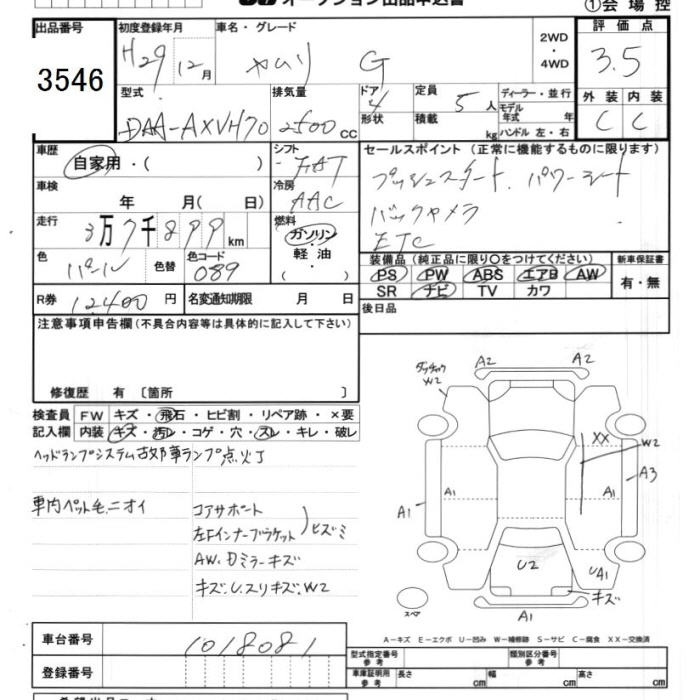 オークション出品申込書
①会場控
出品番号
3546
初度登録年月
H29年12月
車名・グレード
カムリ G
2WD
・
4WD
評価点
3.5
型式
DAA-AXVH70
排気量
2500cc
ドア
4
形状
定員
5人
積載
kg
ディーラー・並行
モデル年式 年
ハンドル 左・右
外装 内装
C C
車歴
自家用・( )
シフト
FAT
セールスポイント(正常に機能するものに限ります)
プッシュスタート. パワーシート
バックカメラ
ETC
車検
年 月( 日)
冷房
AAC
走行
3万7千899km
燃料
ガソリン
・
軽油
・
( )
色
パール
色替
色コード
089
装備品(純正品に限り○をつけてください)
PS PW ABS エアB AW
SR ナビ TV カワ
新車保証書
有・無
R券 12400円
名変通知期限 月 日
後日品
注意事項申告欄(不具合内容等は具体的に記入して下さい)
修復歴 有〔箇所 〕
検査員記入欄
FW キズ・飛石・ヒビ割・リペア跡・×要
内装 キズ・汚レ・コゲ・穴・スレ・キレ・破レ
ヘッドランプシステム故障車ランプ点灯
車内ペット毛.ニオイ
コアサポート
左Fインナーブラケット
ヒズミ
AW.Dミラーキズ
キズ.U.スリキズ.W2
A2 A2
W2
XX
W2
A3
A1 A1 A1 A1
U2
UA1
キズ
スペア
A1
A-キズ E-エクボ U-凹み W-補修跡 S-サビ C-腐食 XX-交換済
車台番号
1018081
登録番号
型式指定番号
参考
類別区分番号
参考
車庫証明用
参考
長さ cm 幅 cm 高さ cm